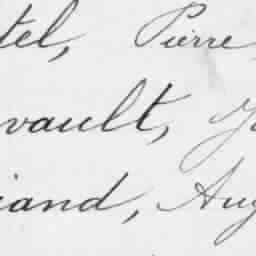 tel, Pierre
vault,
iand, Aug